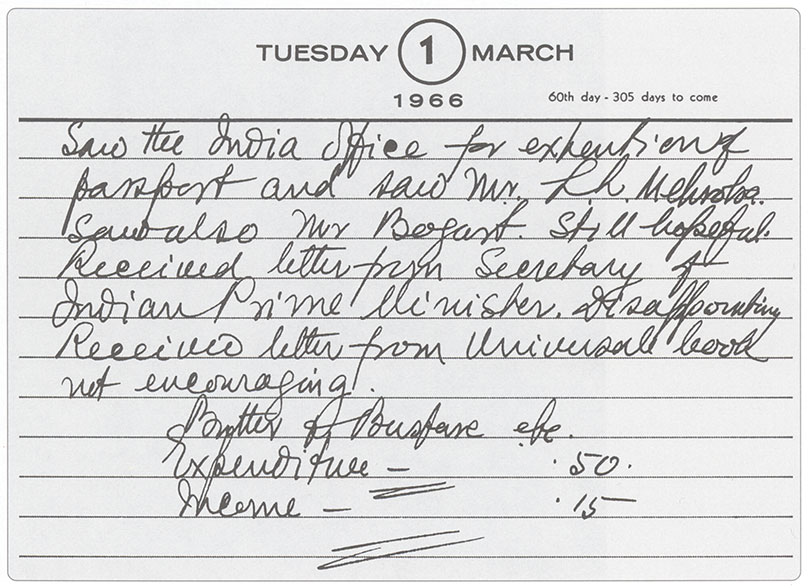 TUESDAY 1 MARCH
1966
60th day - 305 days to come
Saw the India Office for expention of
passport and saw Mr. L.h. Mehrotra.
Saw also Mr Bogart. Still hopeful.
Received letter from Secretary of
Indian Prime Minister. Disappointing
Received letter from Universal book
not encouraging.
Butter & Busfare etc.
Expenditure — .50.
Income — .15